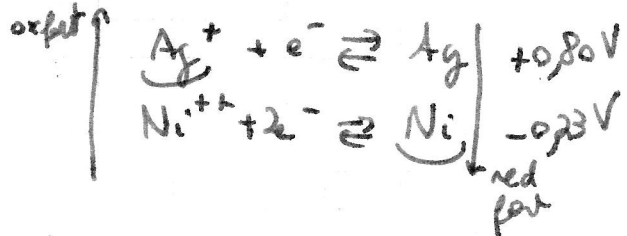 ox fort
Ag⁺ + e⁻ ⇌ Ag +0,80V
Ni⁺⁺ + 2e⁻ ⇌ Ni -0,23V
red
fort